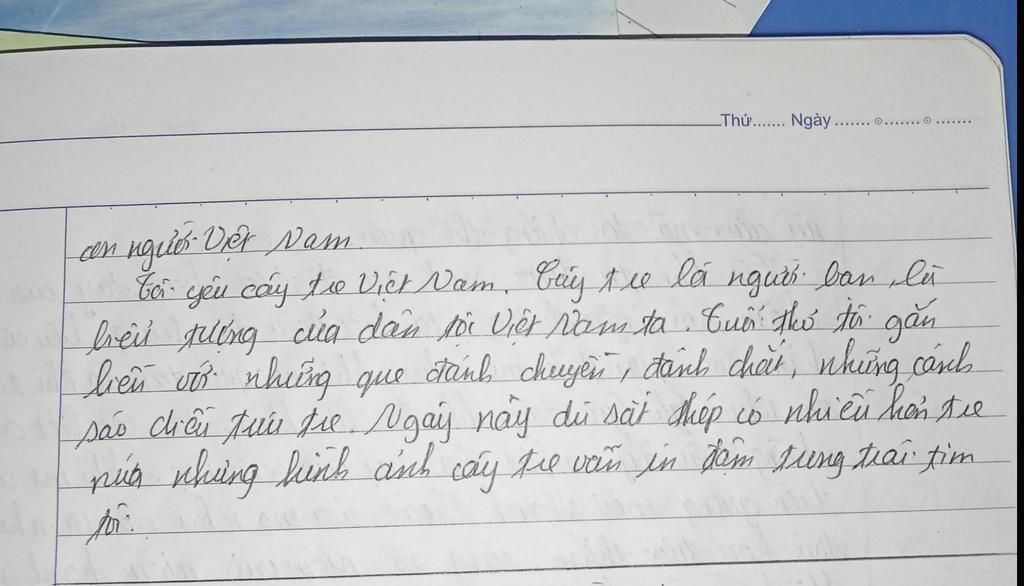 Thứ....... Ngày ....... ๏....... ๏ .......
con người Việt Nam.
Tôi yêu cây tre Việt Nam. Cây tre là người bạn, là
biểu tượng của dân tộc Việt Nam ta. Tuổi thơ tôi gắn
liền với những que đánh chuyền, đánh chắt, những cánh
sáo diều trúc tre. Ngày nay dù sắt thép có nhiều hơn tre
nứa nhưng hình ảnh cây tre vẫn in đậm trong trái tim
tôi.